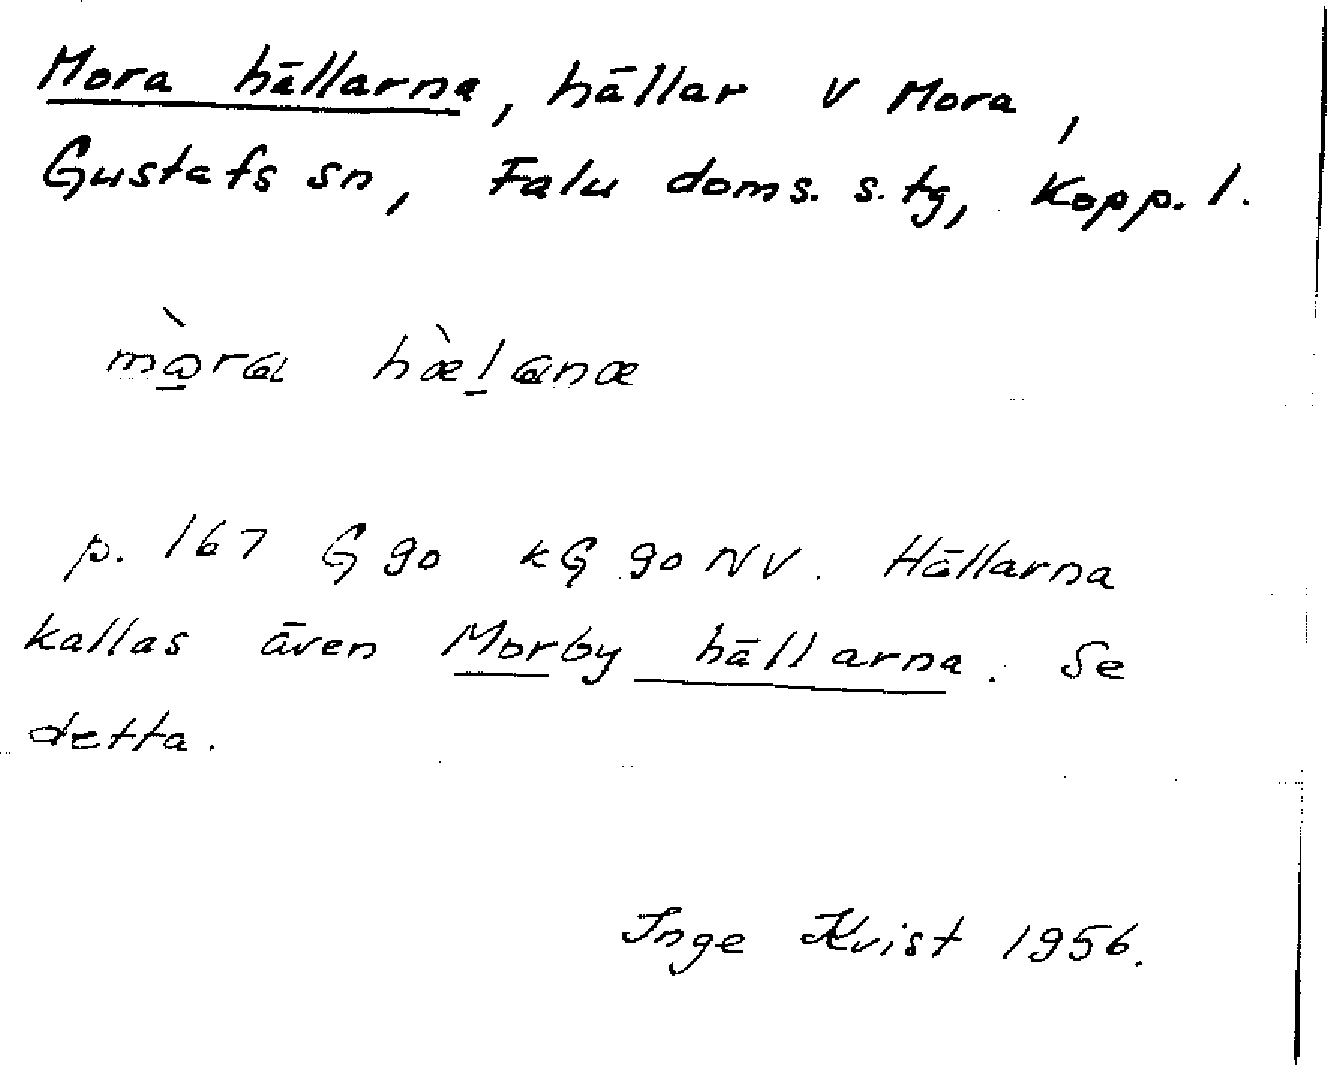 Mora hällarna, hällar V Mora,
Gustafs sn, Falu doms. s. tg, Kopp. l.
mòra hæ̀lanæ
p. 167 G go kG go NV. Hällarna
kallas även Morby hällarna. Se
detta.
Inge Kvist 1956.